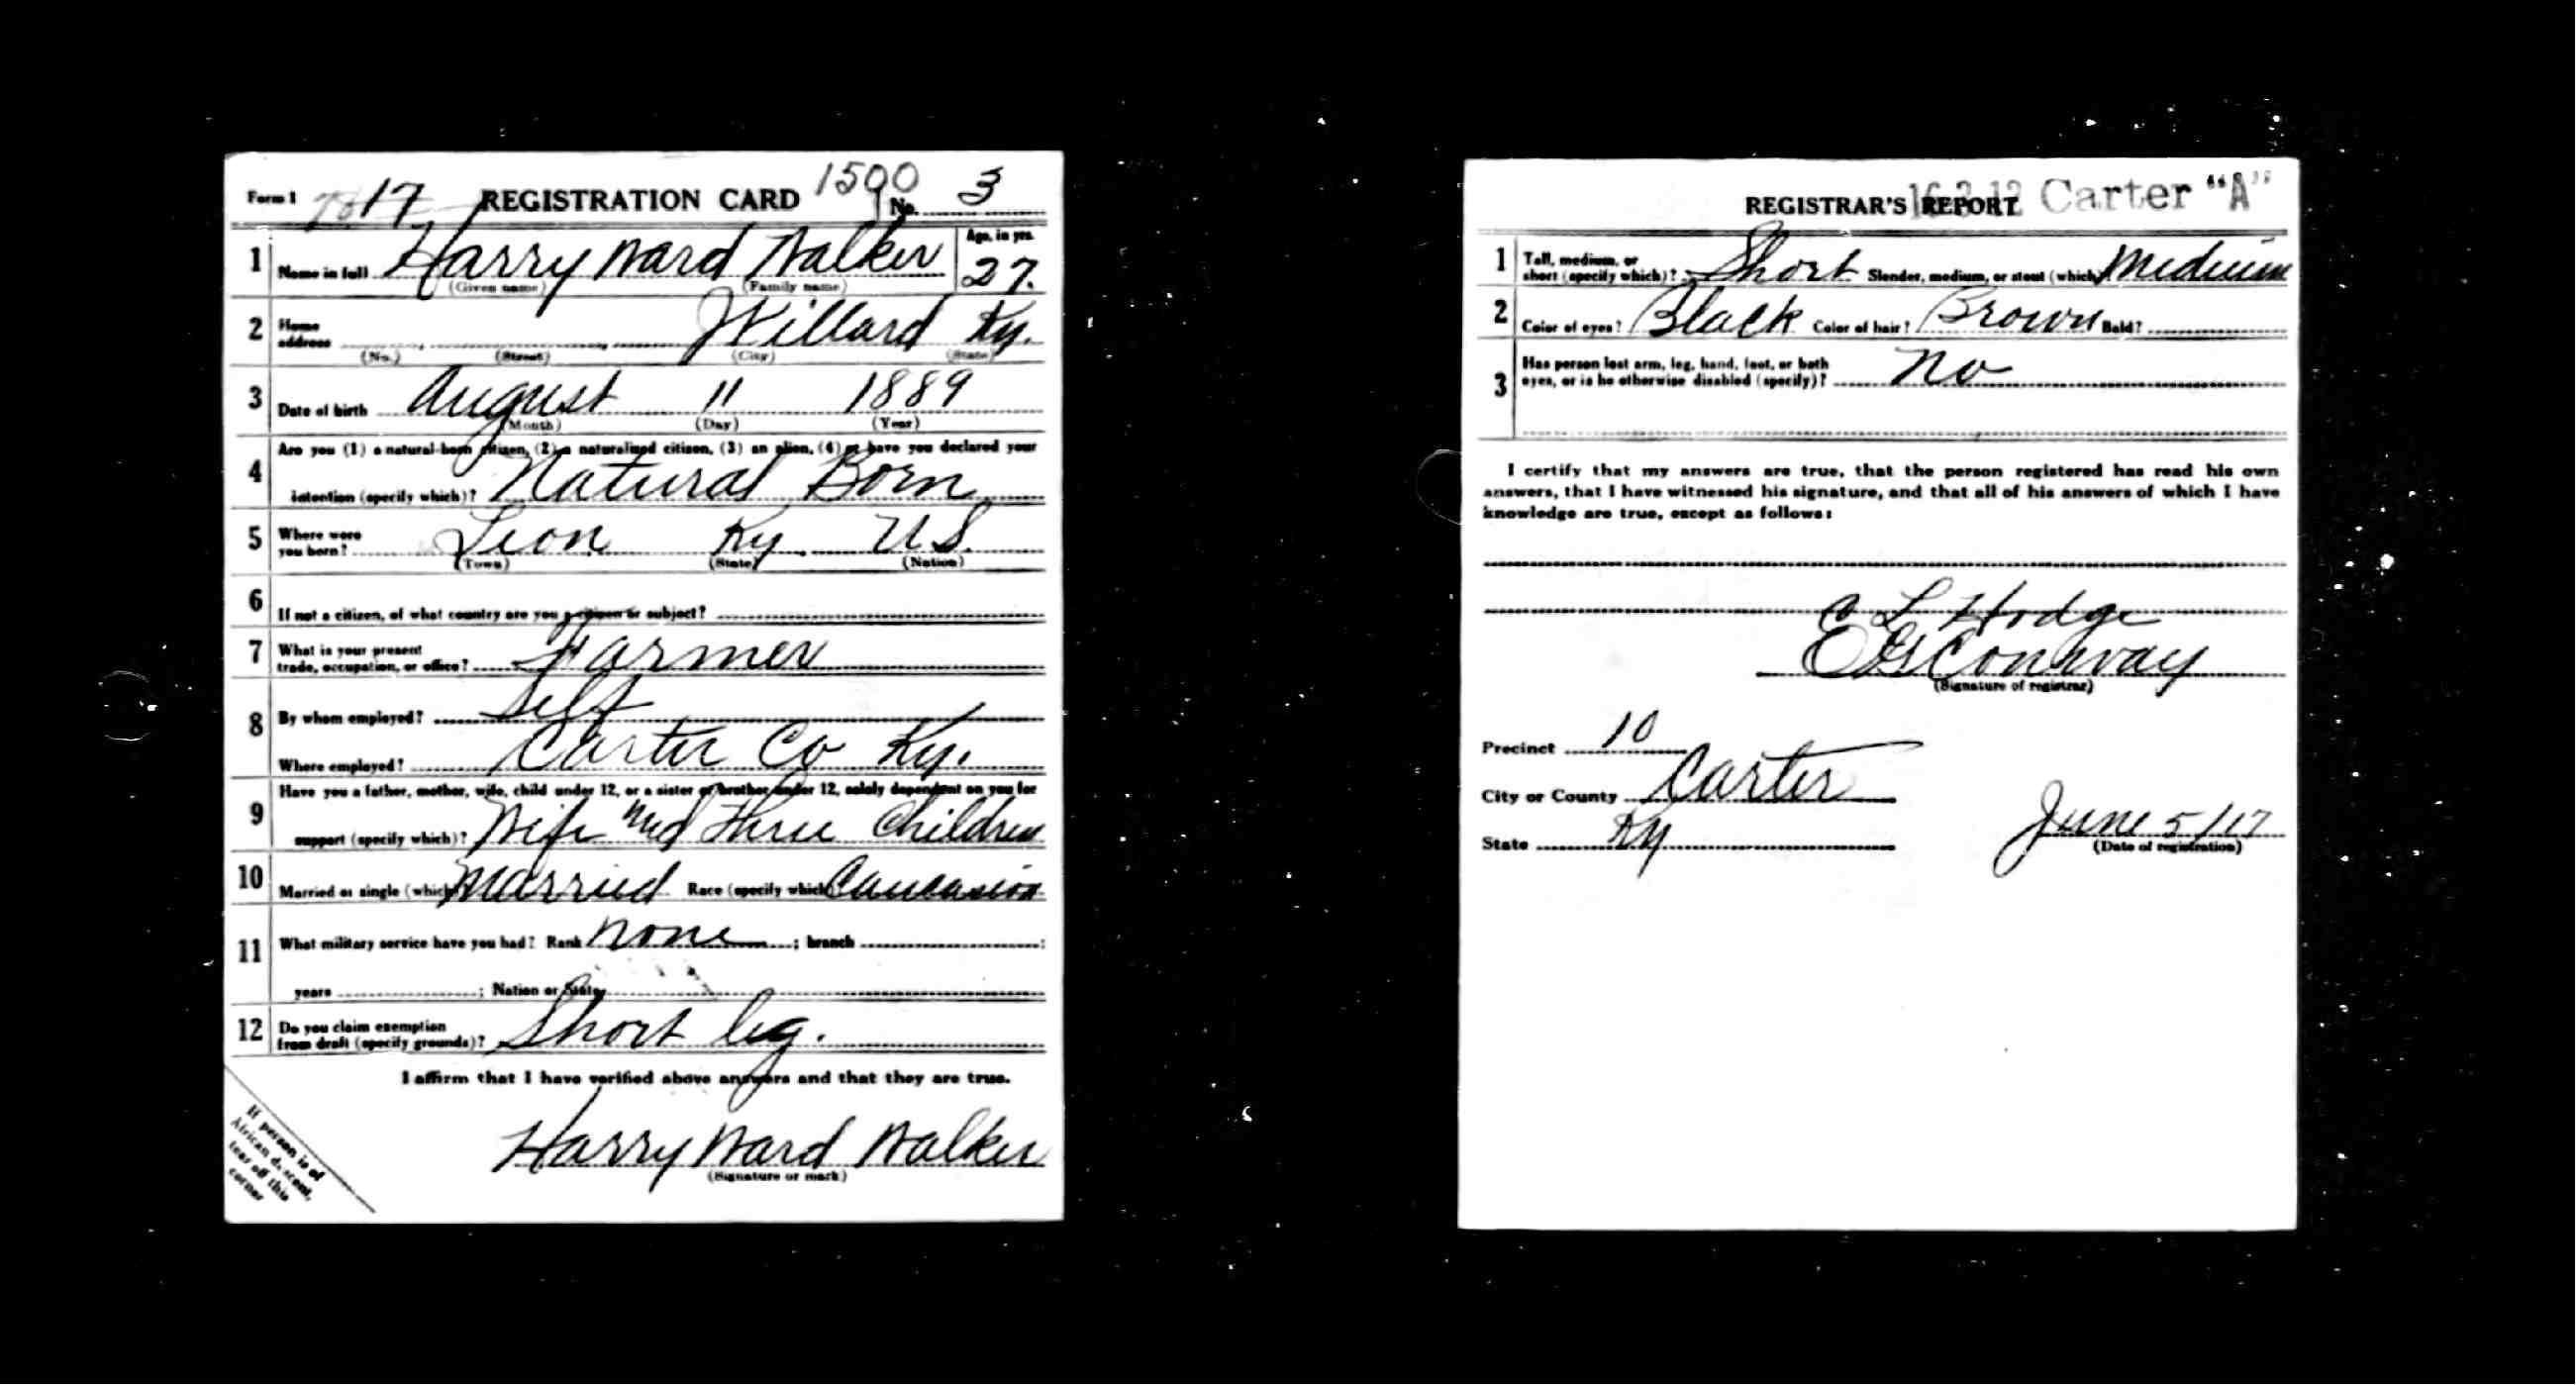 Form 1 17 REGISTRATION CARD 1500 No. 3
1 Name in full Harry Ward Walker Age, in yrs. 27.
(Given name) (Family name)
2 Home address Willard Ky.
(No.) (Street) (City) (State)
3 Date of birth August 11 1889
(Month) (Day) (Year)
4 Are you (1) a natural-born citizen, (2) a naturalized citizen, (3) an alien, (4) or have you declared your
intention (specify which)? Natural Born
5 Where were you born? Leon Ky. U.S.
(Town) (State) (Nation)
6 If not a citizen, of what country are you a citizen or subject?
7 What is your present trade, occupation, or office? Farmer
8 By whom employed? Self
Where employed? Carter Co Ky.
9 Have you a father, mother, wife, child under 12, or a sister or brother under 12, solely dependent on you for
support (specify which)? Wife and Three Children
10 Married or single (which) Married Race (specify which) Caucasion
11 What military service have you had? Rank None ; branch ;
years ; Nation or State
12 Do you claim exemption from draft (specify grounds)? Short leg.
I affirm that I have verified above answers and that they are true.
Harry Ward Walker
(Signature or mark)
If person is of
African descent,
tear off this
corner
REGISTRAR'S REPORT 16-3-12 Carter "A"
1 Tall, medium, or short (specify which)? Short Slender, medium, or stout (which) Medium
2 Color of eyes? Black Color of hair? Brown Bald?
3 Has person lost arm, leg, hand, foot, or both eyes, or is he otherwise disabled (specify)? No
I certify that my answers are true, that the person registered has read his own
answers, that I have witnessed his signature, and that all of his answers of which I have
knowledge are true, except as follows:
E L Hodge
E G Conway
(Signature of registrar)
Precinct 10
City or County Carter
State Ky
June 5/17
(Date of registration)